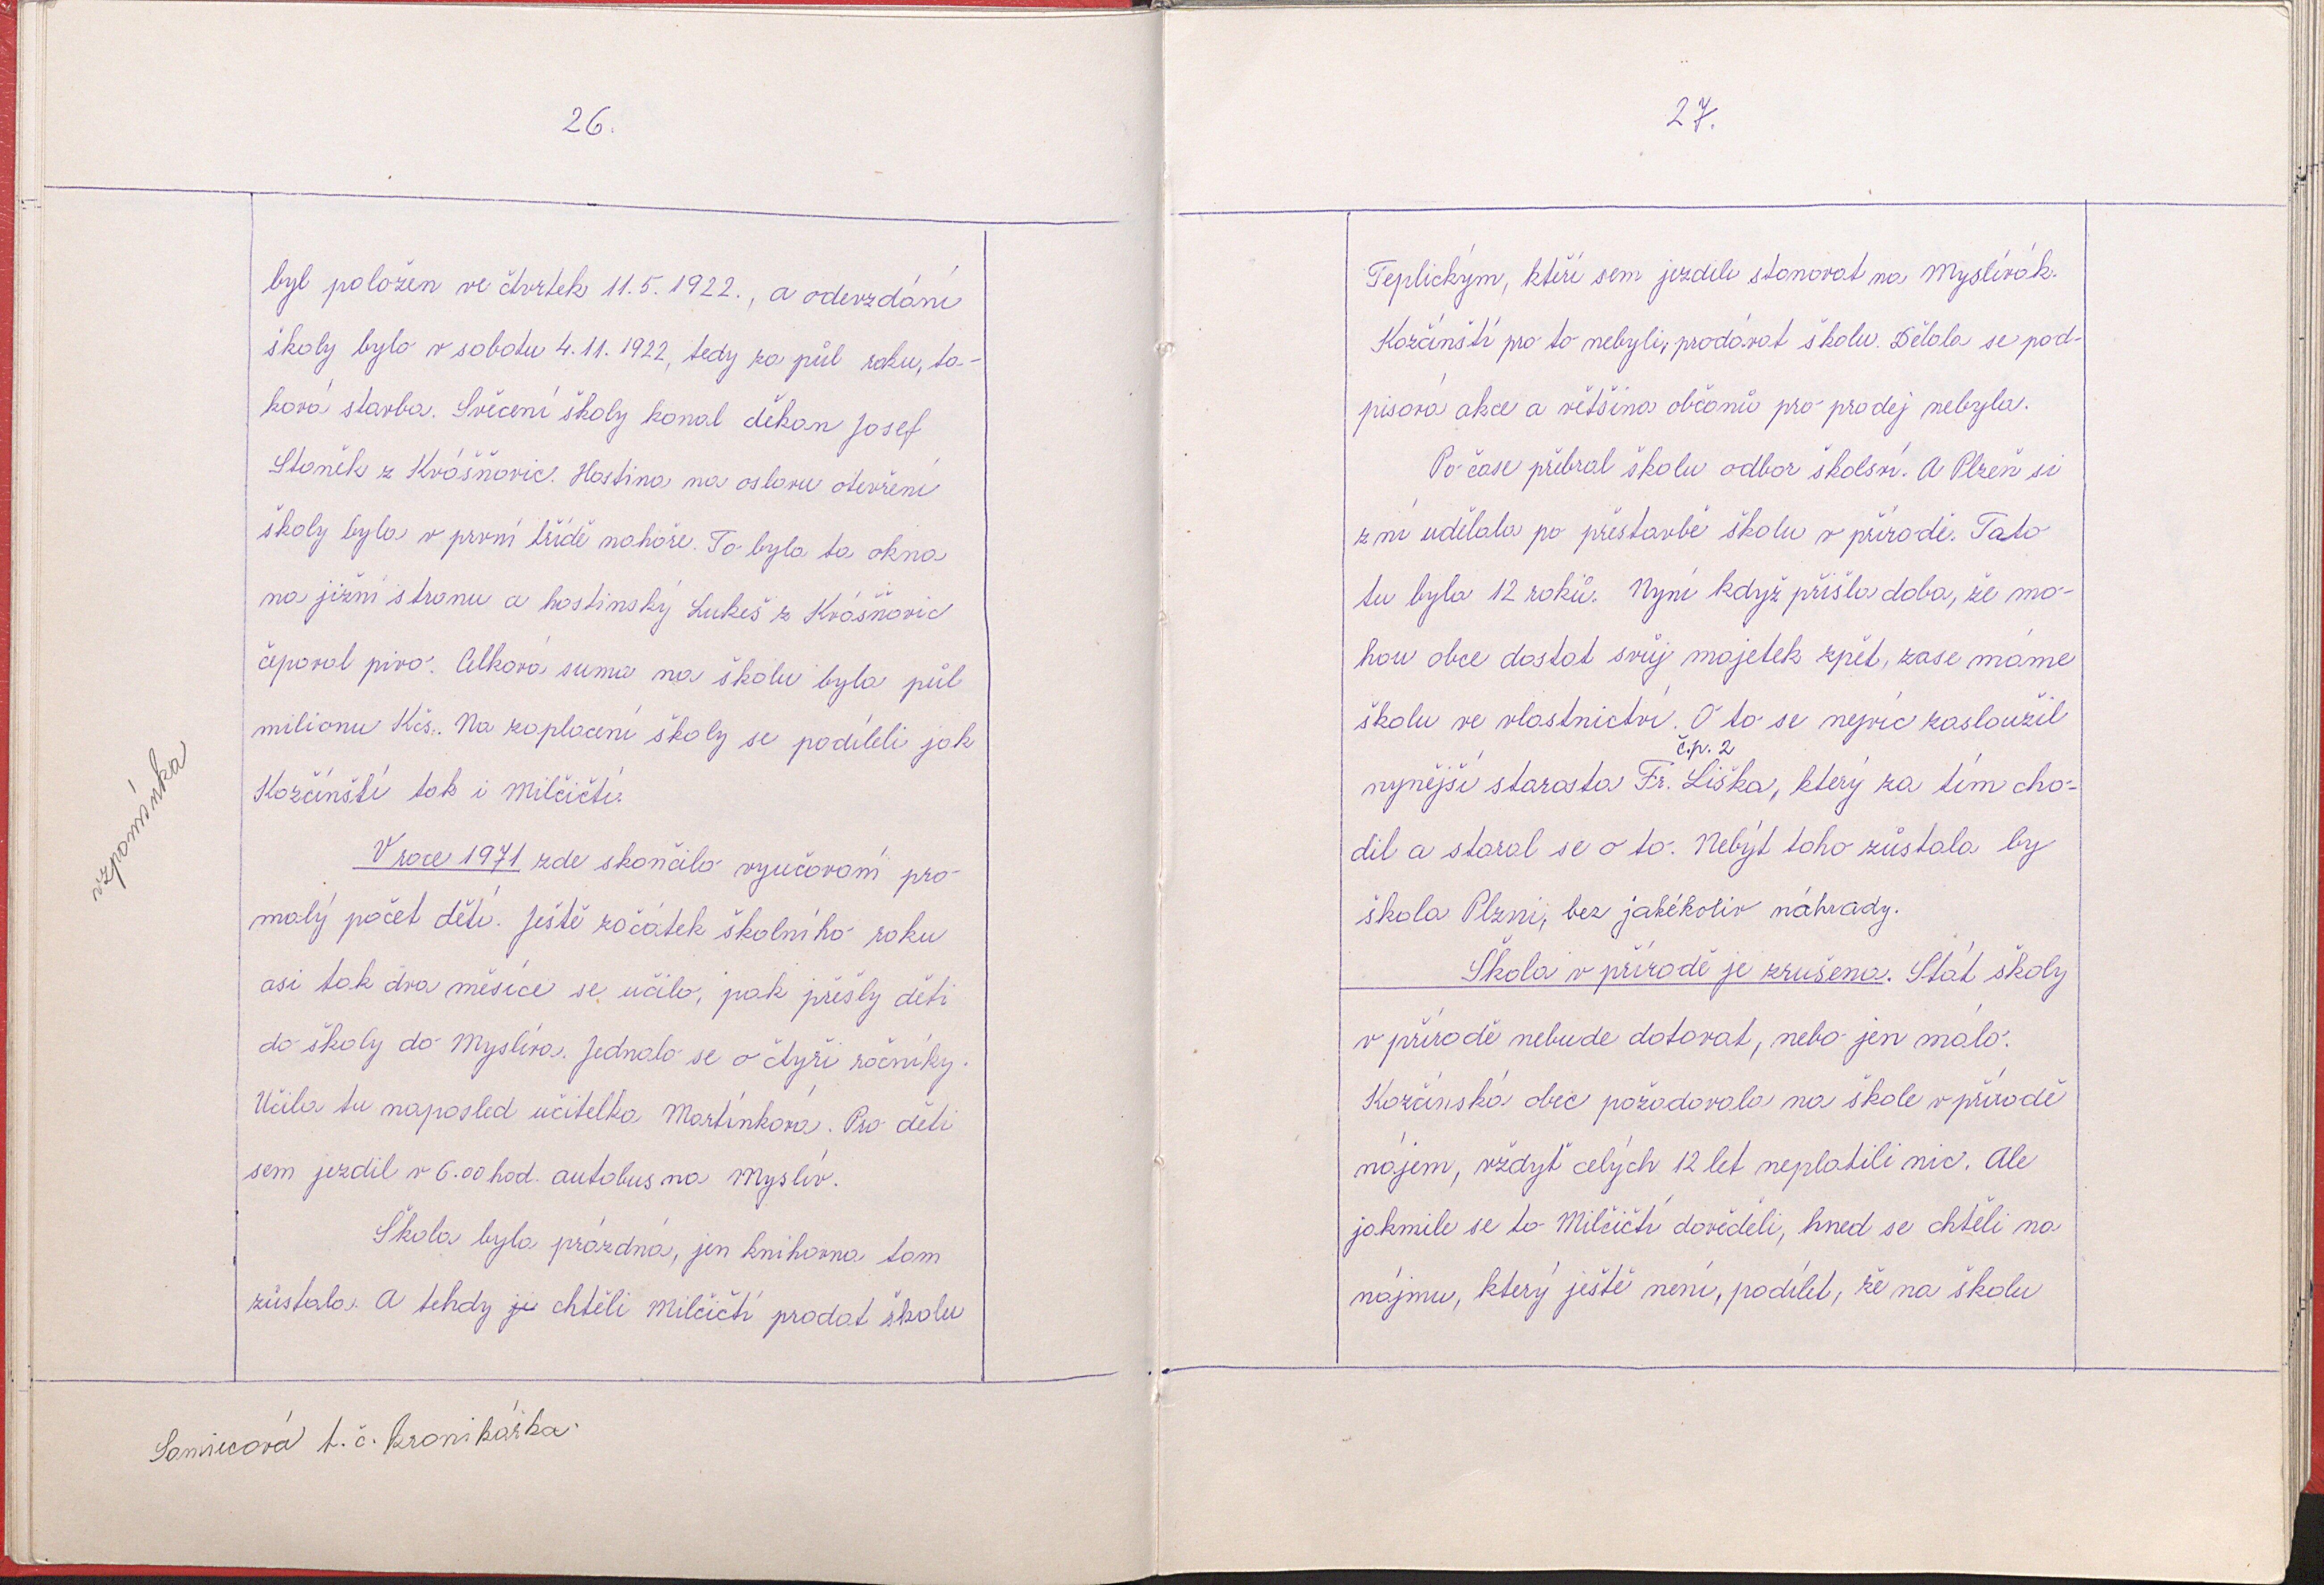 26.
byl položen ve čtvrtek 11.5.1922., a odevzdání
školy bylo v sobotu 4.11.1922, tedy za půl roku, ta-
ková stavba. Svěcení školy konal děkan Josef
Staněk z Kvášňovic. Hostina na oslavu otevření
školy byla v první třídě nahoře. To byla ta okna
na jižní stranu a hostinský Lukeš z Kvášňovic
čepoval pivo. Celková suma na školu byla půl
milionu Kčs. Na zaplacení školy se podíleli jak
Kozčínští tak i Milčičtí.
vzpomínka
V roce 1971 zde skončilo vyučování pro
malý počet dětí. Ještě začátek školního roku
asi tak dva měsíce se učilo, pak přešly děti
do školy do Myslíva. Jednalo se o čtyři ročníky.
Učila tu naposled učitelka Martínková. Pro děti
sem jezdil v 6.00 hod. autobus na Myslív.
Škola byla prázdná, jen knihovna tam
zůstala. A tehdy ji chtěli Milčičtí prodat školu
t.č. kronikářka
27.
Teplickým, kteří sem jezdili stanovat na Myslívák.
Kozčínští pro to nebyli, prodávat školu. Dělala se pod-
pisová akce a většina občanů pro prodej nebyla.
Po čase přibral školu odbor školsví. A Plzeň si
z ní udělala po přestavbě školu v přírodě. Tato
tu byla 12 roků. Nyní když přišla doba, že mo-
hou obce dostat svůj majetek zpět, zase máme
školu ve vlastnictví. O to se nejvíc zasloužil
č.p. 2
nynější starosta Fr. Liška, který za tím cho-
dil a staral se o to. Nebýt toho zůstala by
škola Plzni, bez jakékoliv náhrady.
Škola v přírodě je zrušena. Stát školy
v přírodě nebude dotovat, nebo jen málo.
Kozčínská obec požadovala na škole v přírodě
nájem, vždyť celých 12 let neplatili nic. Ale
jakmile se to Milčičtí dověděli, hned se chtěli na
nájmu, který ještě není, podílet, že na školu